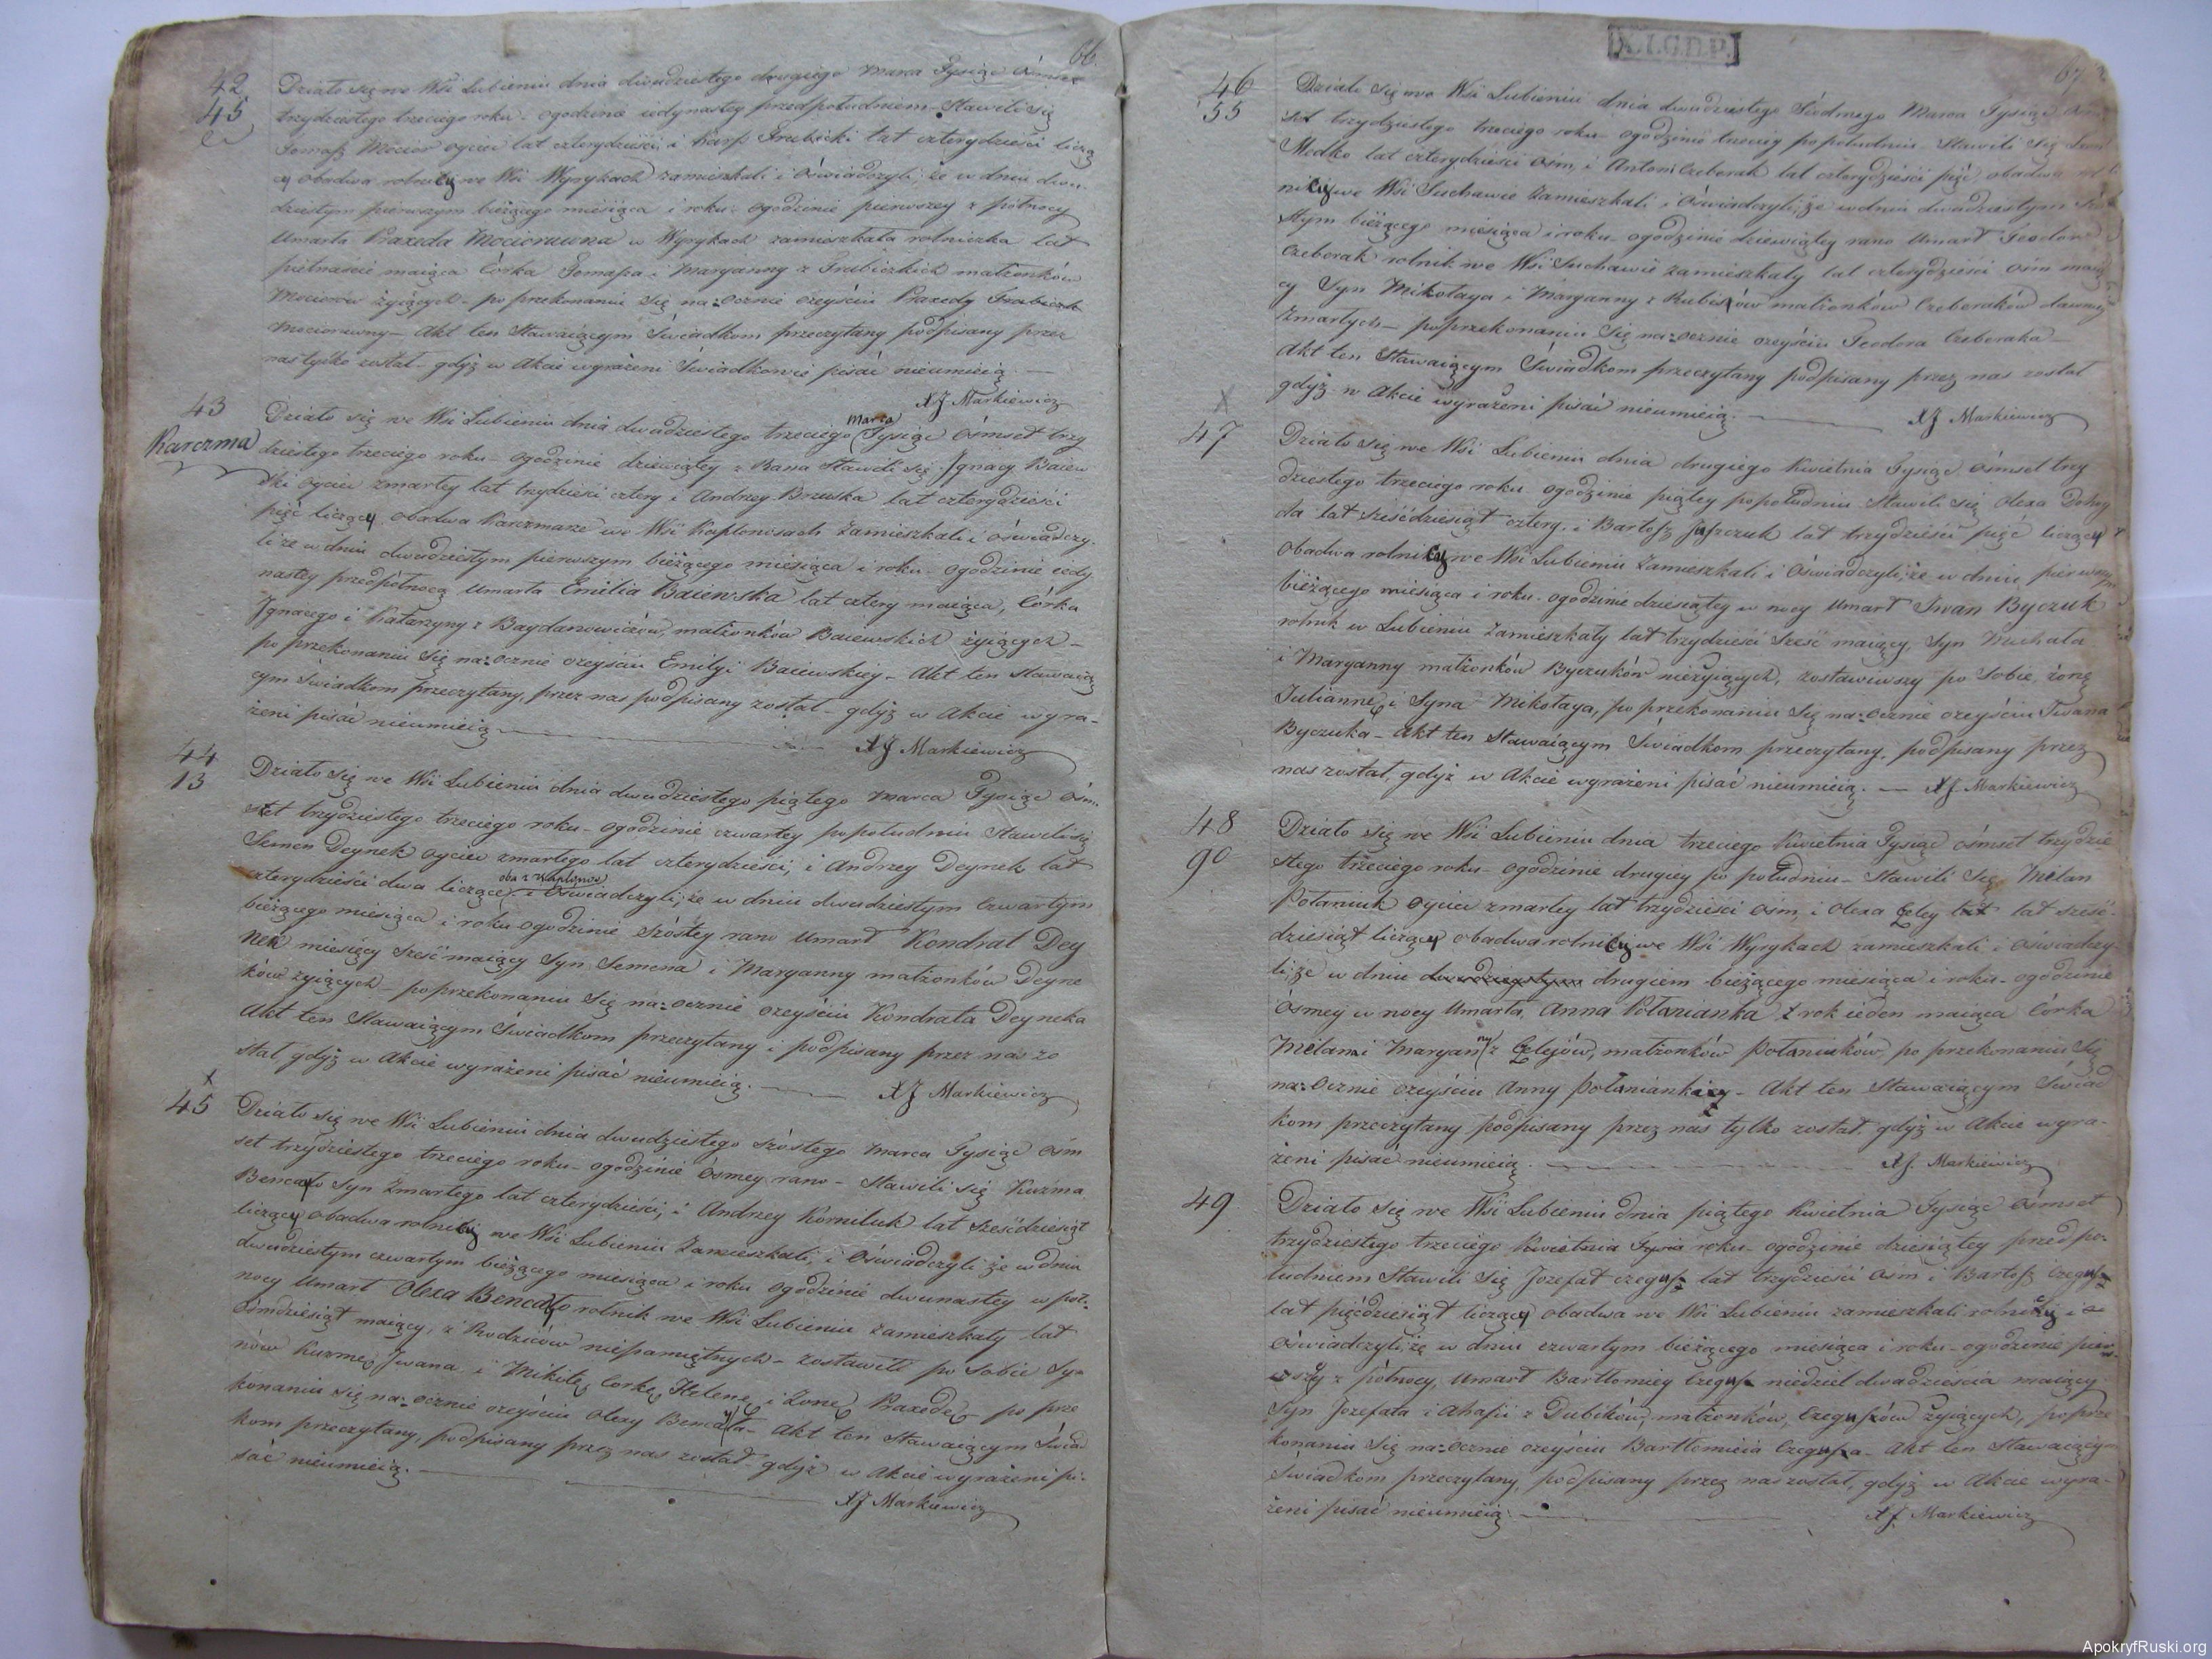 66
42
45
Działo się we Wsi Lubieniu dnia dwudziestego drugiego Marca Tysiąc Ośmset
trzydziestego trzeciego roku. ogodzinie iedynastey przedpołudniem. Stawili się
Tomasz Mocior oyciec lat czterydzieści, i Karp Grabicki lat czterydzieści liczą
cy obadwa rolnicy we Wsi Wyrykach zamieszkali i Oświadczyli, że w dniu dwu
dziestym pierwszym bieżącego miesiąca i roku. ogodzinie pierwszey z północy
Umarła Praxeda Mociorowna w Wyrykach zamieszkała rolniczka lat
piętnaście maiąca Córka Tomasza i Maryanny z Grabickich małżonków
Mociorów żyiących - po przekonaniu się na=ocznie ozeyściu Praxedy
Mociorowny - Akt ten Stawaiącym Świadkom przeczytany podpisany przez
nas tylko został - gdyż w Akcie wyrażeni Świadkowie pisać nieumieią.
XJ Markiewicz
43
Karczma
Działo się we Wsi Lubieniu dnia dwudziestego trzeciego Marca Tysiąc Ośmset trzy
dziestego trzeciego roku - ogodzinie dziewiątey z Rana Stawili się Jgnacy Baiew
ski oyciec zmarłey lat trzydzieści cztery i Andrzey Brzuska lat czterydzieści
pięć liczący obadwa Karczmarze we Wsi Kaplonosach Zamieszkali i oświadczy.
li że w dniu dwudziestym pierwszym bieżącego miesiąca i roku. ogodzinie iedy
nastey przedpółnocą Umarła Emilia Baiewska lat cztery maiąca, Córka
Jgnacego i Katarzyny z Bagdanowiczów, małżonków Baiewskich żyiących -
po przekonaniu się na=ocznie ozeyściu Emilyi Baiewskiey - Akt ten Stawaią
cym Świadkom przeczytany, przez nas podpisany został - gdyż w Akcie wyra-
żeni pisać nieumieią.
XJ Markiewicz
44
13
Działo się we Wsi Lubieniu dnia dwudziestego piątego Marca Tysiąc Ośm.
set trzydziestego trzeciego roku - ogodzinie czwartey popołudniu Stawili się
Semen Deynek oyciec zmarłego lat czterydzieści, i Andrzey Deynek lat
czterydzieści dwa liczące, oba z Kaplonos i Oświadczyli, że w dniu dwudziestym czwartym
bieżącego miesiąca i roku ogodzinie szóstey rano Umarł Kondrat Dey
nek miesięcy sześć maiący Syn Semena i Maryanny małżonków Deyne
ków żyiących - poprzekonaniu się na=ocznie ozeyściu Kondrata Deyneka
Akt ten Stawaiącym Świadkom przeczytany i podpisany przez nas zo
stał gdyż w Akcie wyrażeni pisać nieumieią.
XJ Markiewicz
x
45
Działo się we Wsi Lubieniu dnia dwudziestego szóstego Marca Tysiąc Ośm
set trzydziestego trzeciego roku - ogodzinie ósmey rano - Stawili się Kuźma
Bencało Syn Zmarłego lat czterydzieści, i Andrzey Korniluk lat sześćdziesiąt
liczący obadwa rolnicy we Wsi Lubieniu Zamieszkali, i Oświadczyli że w dniu
dwudziestym czwartym bieżącego miesiąca i roku ogodzinie dwunastey w pół.
nocy Umarł Olexa Bencało rolnik we Wsi Lubieniu zamieszkały lat
ośmdziesiąt maiący, z Rodziców niepamiętnych - zostawił po Sobie Sy=
nów Kuzmę, Jwana i Mikitę, Corkę Helenę i Zonę Praxedę, po prze
konaniu się na=ocznie ozeyściu Olexy Bencała - Akt ten Stawaiącym Świad
kom przeczytany, podpisany przez nas został gdyż w Akcie wyrażeni pi=
sać nieumieią.
XJ Markiewicz
67
46
55
Działo się we Wsi Lubieniu dnia dwudziestego Siódmego Marca Tysiąc
set trzydziestego trzeciego roku - ogodzinie trzeciey popołudniu Stawili się
Modko lat czterydzieści ośm, i Antoni Czeberak lat czterydzieści pięć, obadwa rol
nicy we Wsi Suchawie Zamieszkali i Oświadczyli, że wdniu dwudziestym
stym bieżącego miesiąca i roku - ogodzinie dziewiątey rano Umarł Teodor
Czeberak rolnik we Wsi Suchawie zamieszkały lat czterydzieści ośm maią
cy Syn Mikołaya i Maryanny z małżonków Czeberaków dawniey
Zmarłych - poprzekonaniu się na=ocznie ozeyściu Teodora Czeberaka -
Akt ten Stawaiącym Świadkom przeczytany podpisany przez nas został
gdyż w Akcie wyrażeni pisać nieumieią.
XJ Markiewicz
X
47
Działo się we Wsi Lubieniu dnia drugiego Kwietnia Tysiąc Ośmset trzy
dziestego trzeciego roku ogodzinie piątey popołudniu Stawili się Olexa
da lat sześćdziesiąt cztery, i Bartosz Juszczuk lat trzydzieści pięć liczący
Obadwa rolnicy we Wsi Lubieniu Zamieszkali i Oświadczyli, że w dniu pierwszym
bieżącego miesiąca i roku. ogodzinie dziesiątey w nocy Umarł Jwan Byczuk
rolnik w Lubieniu Zamieszkały lat trzydzieści sześć maiący, Syn Michała
i Maryanny małżonków Byczuków nieżyiących, zostawiwszy po Sobie żonę
Juliannę i Syna Mikołaya, po przekonaniu się na=ocznie ozeyściu Jwana
Byczuka - Akt ten Stawaiącym Świadkom przeczytany, podpisany przez
nas został, gdyż w Akcie wyrażeni pisać nieumieią. - XJ Markiewicz
48
90
Działo się we Wsi Lubieniu dnia trzeciego Kwietnia Tysiąc ośmset trzydzie
stego trzeciego roku - ogodzinie drugiey po południu - Stawili się Milan
Połaniuk oyciec zmarłey lat trzydzieści ośm, i Olexa Zeley lat sześć.
dziesiąt liczący obadwa rolnicy we Wsi Wyrykach zamieszkali i Oświadczy
li, że w dniu dwudziestym drugiem bieżącego miesiąca i roku - ogodzinie
Ósmey w nocy Umarła, Anna Połanianka rok ieden maiąca Córka
Milana i Maryanny z Zeleyów, małżonków Połaniuków, po przekonaniu się
na=ocznie ozeyściu Anny Połanianki - Akt ten Stawaiącym Świad
kom przeczytany podpisany przez nas tylko został, gdyż w Akcie wyra-
żeni pisać nieumieią.
XJ. Markiewicz
49
Działo się we Wsi Lubieniu dnia piątego Kwietnia Tysiąc Ośmset
trzydziestego trzeciego Kwietnia roku - ogodzinie dziesiątey przedpo=
łudniem Stawili się Jozefat Czegusz lat trzydzieści ośm i Bartosz Czegusz
lat pięćdziesiąt liczący obadwa we Wsi Lubieniu zamieszkali rolnicy i
Oświadczyli, że w dniu czwartym bieżącego miesiąca i roku - ogodzinie pier
wszey z północy, Umarł Bartłomiey Czegusz niedziel dwadzieścia maiący
Syn Jozefata i Ahafii z Dubików, małżonków, Czeguszów żyiących, poprze
konaniu się na=ocznie ozeyściu Bartłomieia Czegusza - Akt ten Stawaiącym
Świadkom przeczytany, podpisany przez nas został, gdyż w Akcie wyra-
żeni pisać nieumieią.
XJ. Markiewicz
ApokryfRuski.org